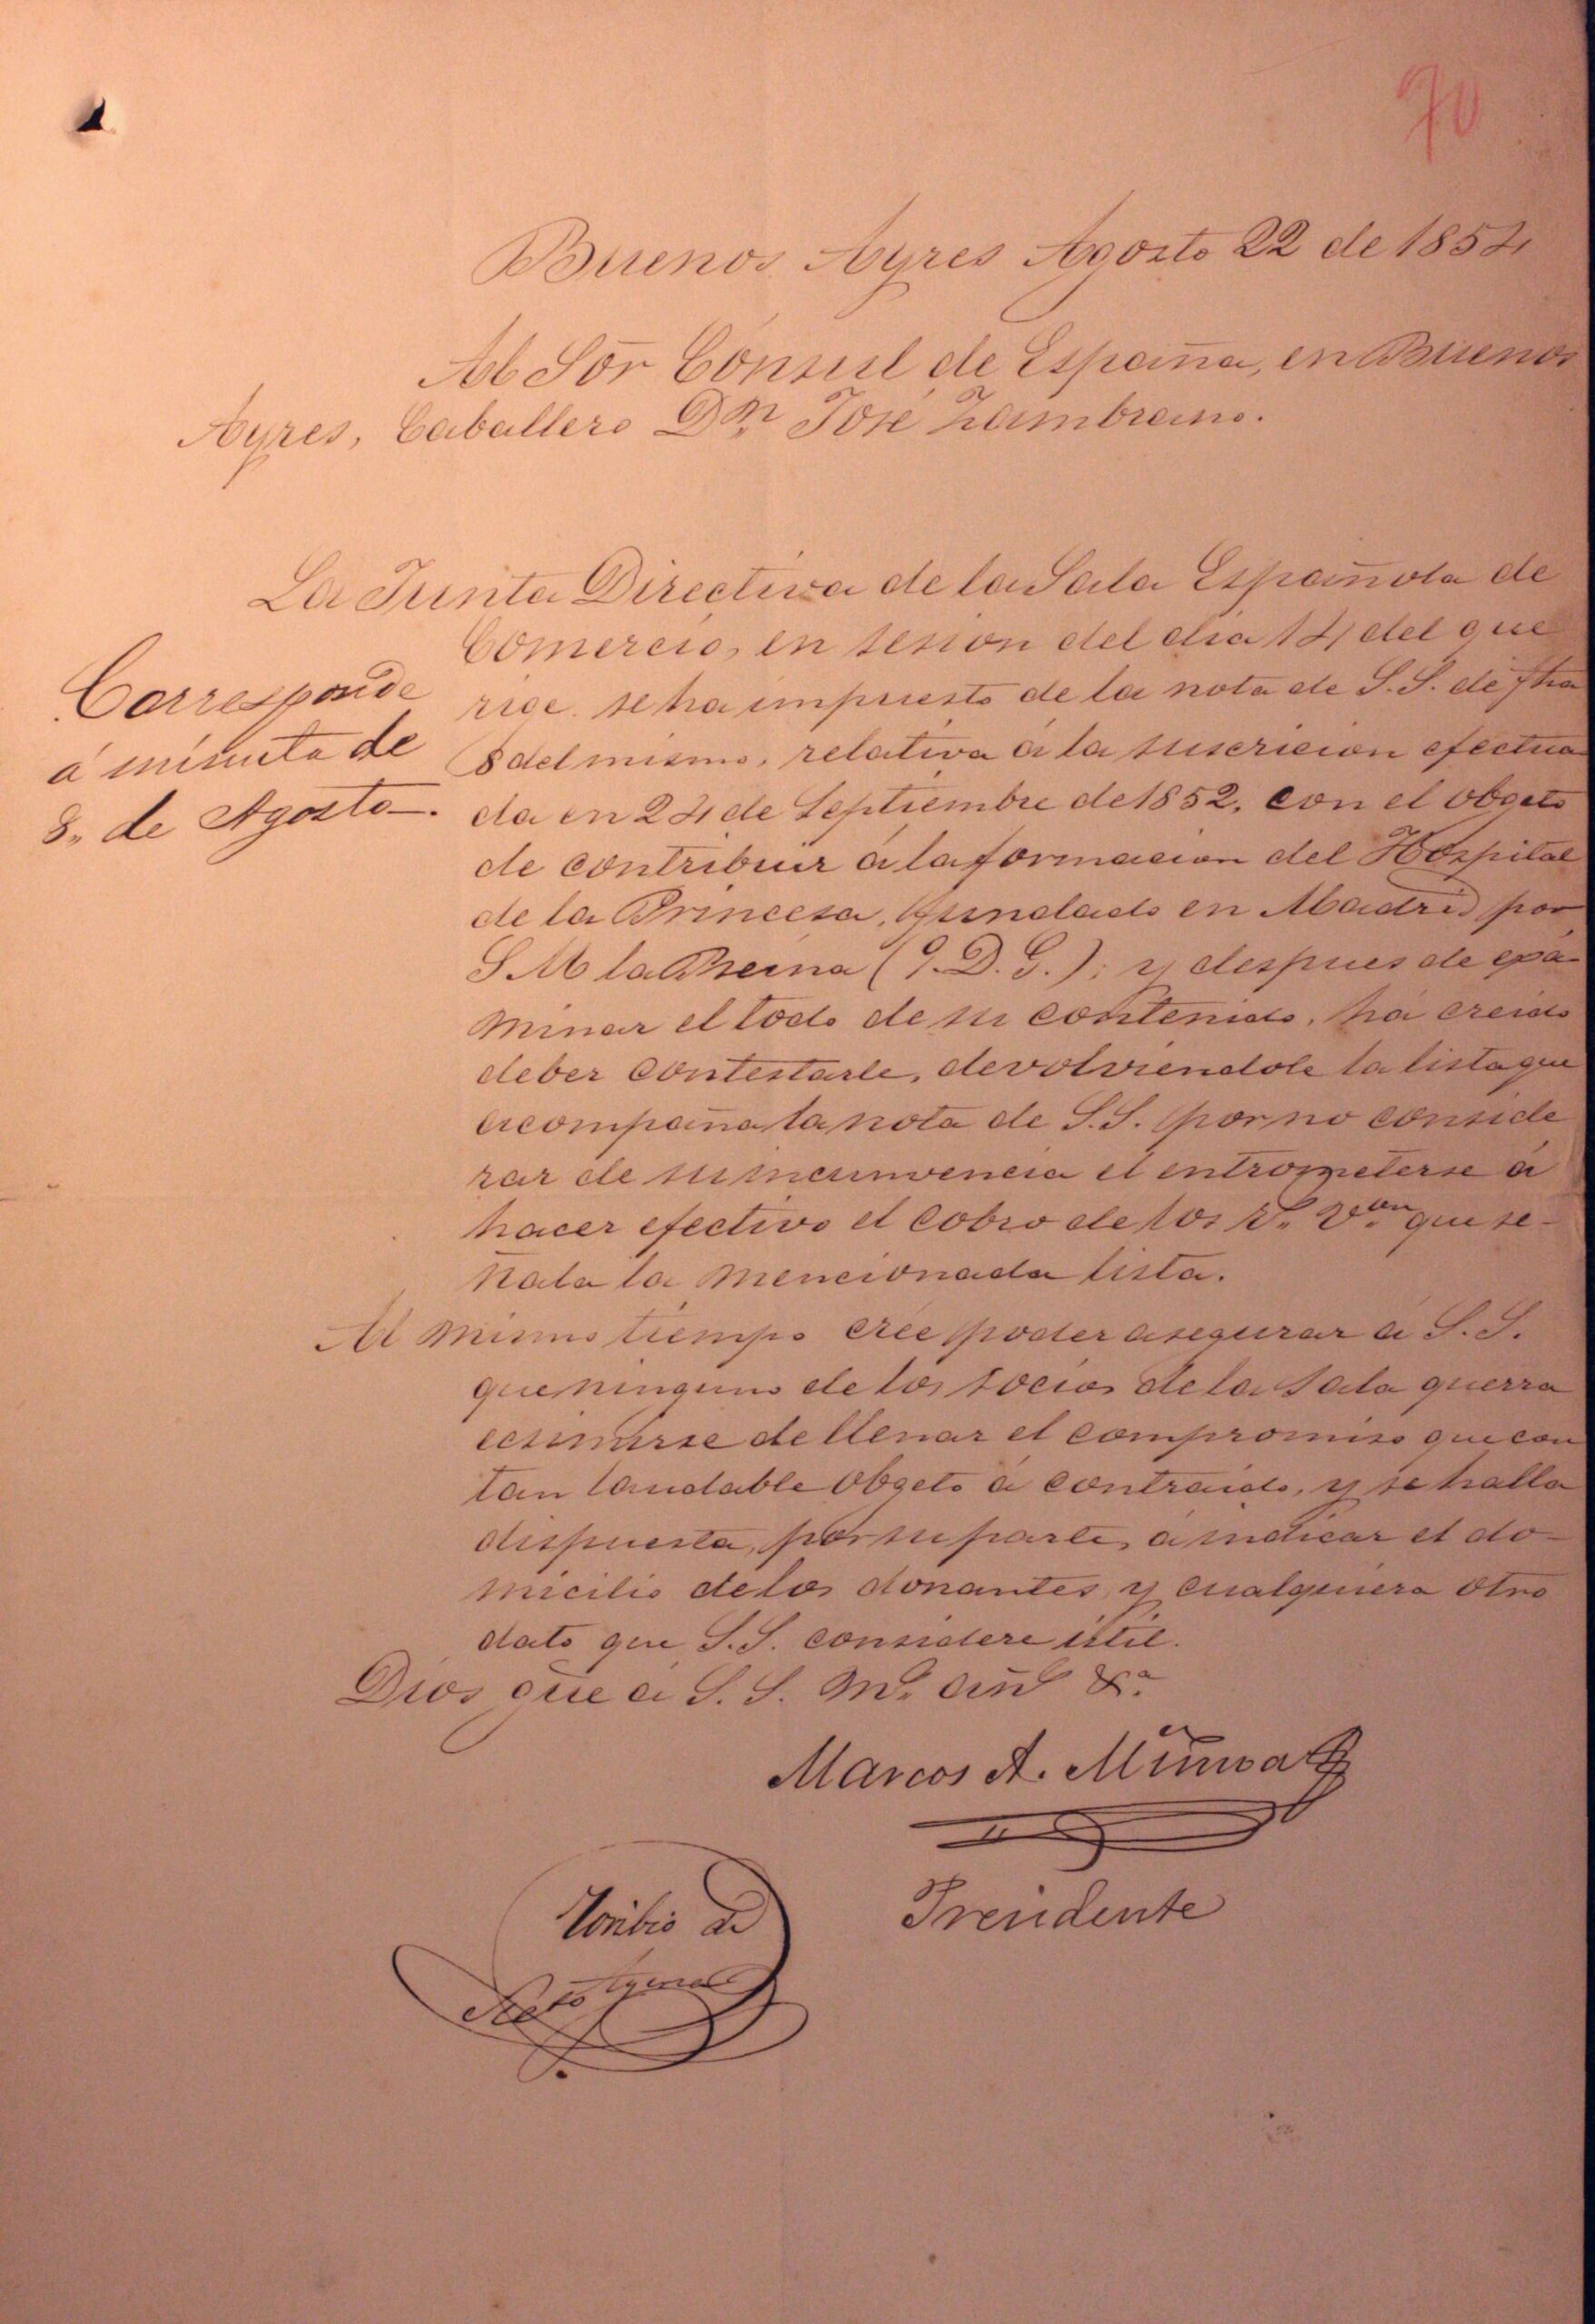 70
Buenos Ayres Agosto 22 de 1854
Al Sōr Cónsul de España, en Buenos
Ayres, Caballero Dn. José Zambrano.
La Junta Directiva de la Sala Española de
Comercio, en sesion del dia 14 del que
rige se ha impuesto de la nota de S.S. de fha
8 del mismo, relativa á la suscricion efectua
da en 24 de Septiembre de 1852, con el obgeto
de contribuir á la formacion del Hospital
de la Princesa, fundado en Madrid por
S M la Reina (q. D. G.); y despues de exa-
minar el todo de su contenido, há creido
deber contestarle, devolviendole la lista que
acompaña la nota de S.S. por no conside
rar de su incunvencia el entrometerse á
hacer efectivo el cobro de los r.s v.on que se-
ñala la mencionada lista.
Al mismo tiempo crée poder asegurar á S.S.
que ninguno de los socios de la Sala querra
ecsimirse de llenar el compromiso que con
tan laudable obgeto á contraido, y se halla
dispuesta, por su parte, á indicar el do-
micilio de los donantes y cualquiera otro
dato que S.S. considere útil.
Dios gue á S. S. ms. añs &a.
Corresponde
á minuta de
8. de Agosto.
Marcos A. Munoa
Presidente
Toribio de
Srio